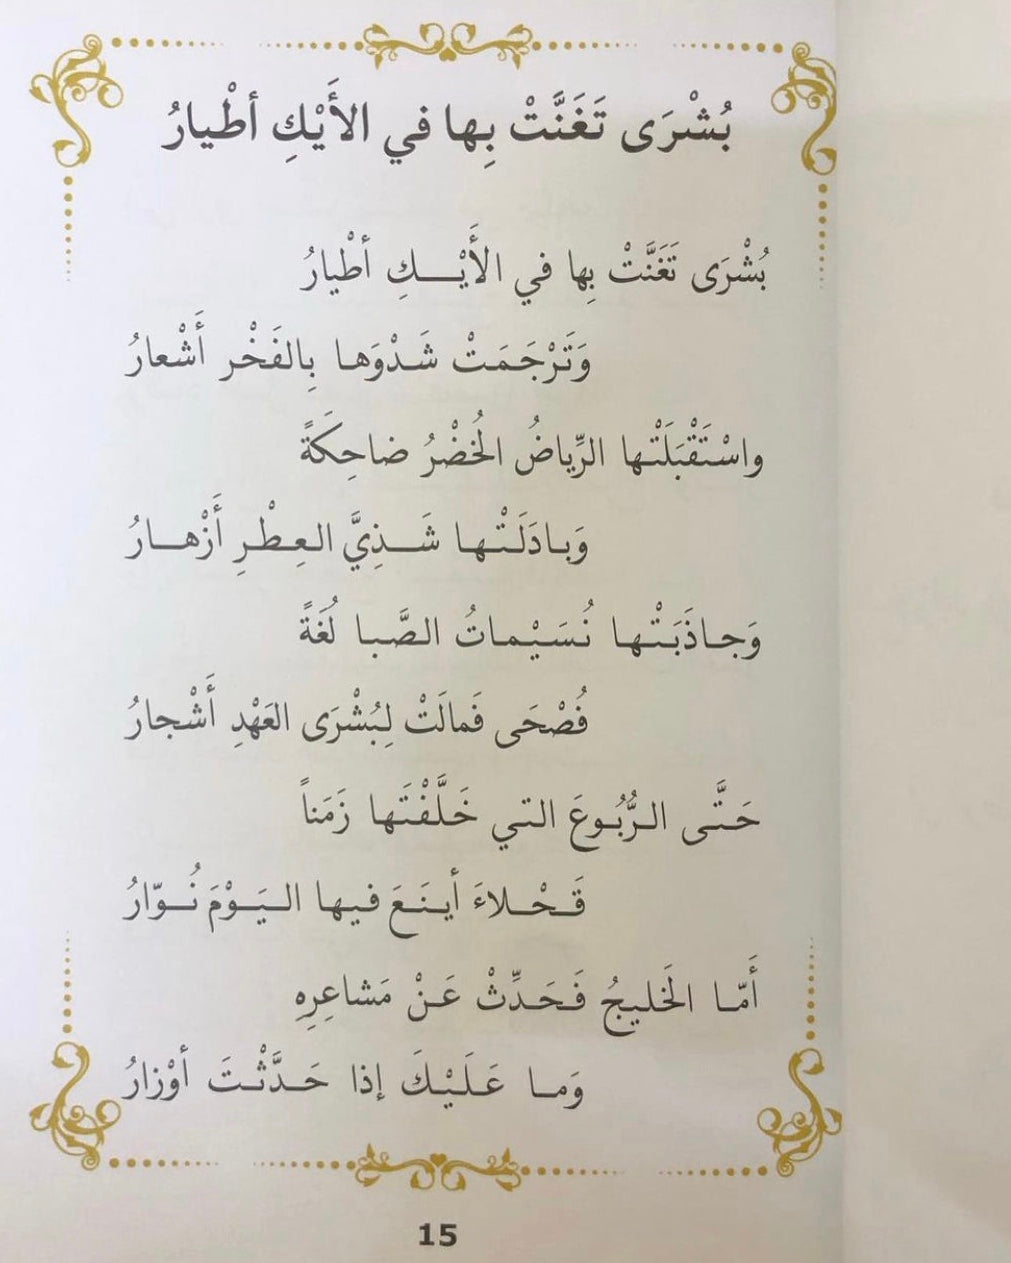 بُشْرَى تَغَنَّتْ بِها في الأَيْكِ أطْيارُ
بُشْرَى تَغَنَّتْ بِها في الأَيْكِ أطْيارُ
وَتَرْجَمَتْ شَدْوَها بِالفَخْر أَشْعارُ
واسْتَقْبَلَتْها الرِّياضُ الخُضْرُ ضاحِكَةً
وَبادَلَتْها شَذِيَّ العِطْرِ أَزْهارُ
وَجاذَبَتْها نُسَيْماتُ الصَّبا لُغَةً
فُصْحَى فَمالَتْ لِبُشْرَى العَهْدِ أَشْجارُ
حَتَّى الرُّبُوعَ التي خَلَّفْتَها زَمَناً
قَحْلاءَ أينَعَ فيها اليَوْمَ نُوّارُ
أَمّا الخَليجُ فَحَدِّثْ عَنْ مَشاعِرِهِ
وَما عَلَيْكَ إذا حَدَّثْتَ أوْزارُ
15